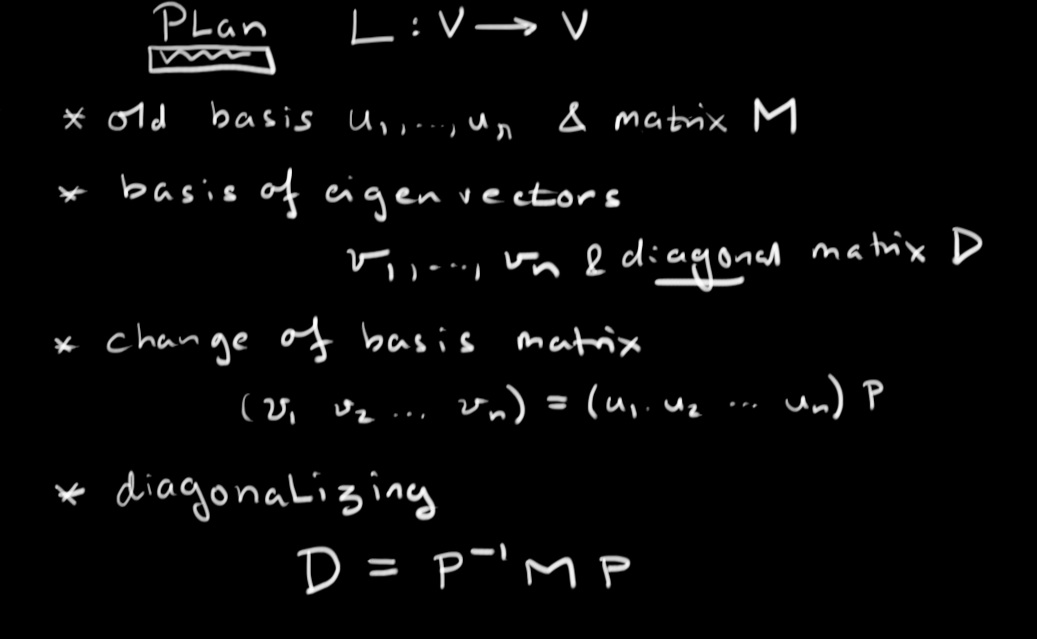 PLan L : V → V
* old basis u₁, ..., uₙ & matrix M
* basis of eigenvectors
v₁, ..., vₙ & diagonal matrix D
* change of basis matrix
(v₁ v₂ ... vₙ) = (u₁. u₂ ... uₙ) P
* diagonaLizing
D = P⁻¹ M P